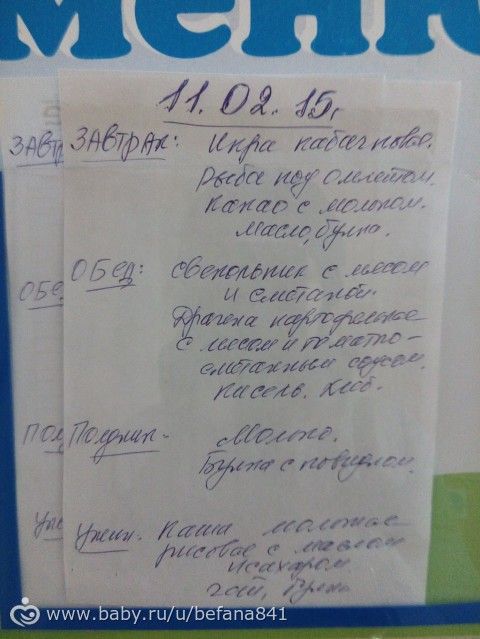 меню
11.02.15г
ЗАВТ ЗАВТРАК: Икра кабачковая.
Рыба под омлетом.
Какао с молоком.
Масло, булка.
ОБЕ ОБЕД: Свекольник с мясом
и сметаной.
Драчена картофельная
с мясом и томатно-
сметанным соусом.
Кисель. Хлеб.
ПОЛ Полдник- Молоко.
Булка с повидлом.
Уж Ужин- Каша молочная
рисовая с маслом
и сахаром
чай, булка
www.baby.ru/u/befana841